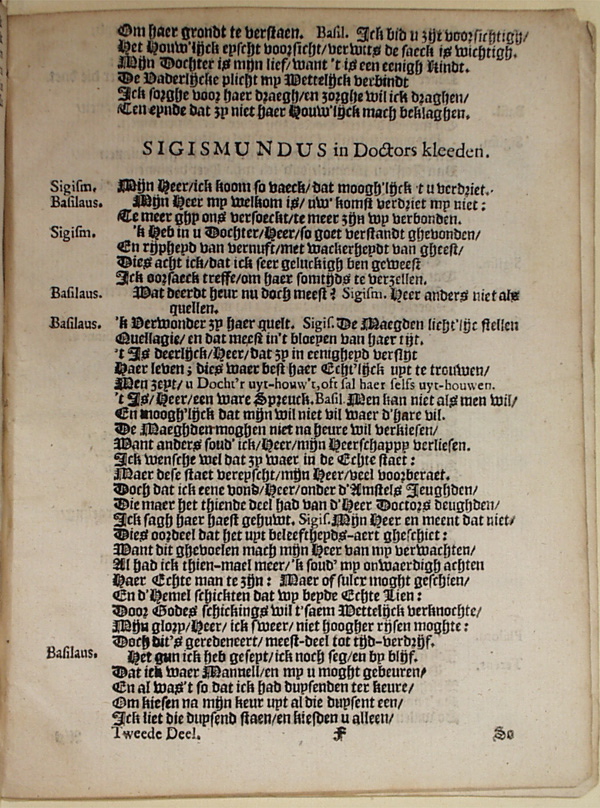 Om haer grondt te verstaen. Basil. Ick bid u zijt voorsichtigh/
Het Houw'lijck eyscht voorsicht/verwits de saeck is wichtigh.
Mijn Dochter is mijn lief/want 't is een eenigh kindt.
De Vaderlijcke plicht my Wettelijck verbindt
Ick sorghe voor haer draegh/en zorghe wil ick draghen/
Ten eynde dat zy niet haer Houw'lijck mach beklaghen.
SIGISMUNDUS in Doctors kleeden.
Sigism. Mijn Heer/ick koom so vaeck/dat moogh'lijck 't u verdriet.
Basilaus. Mijn Heer my welkom is/uw' komst verdriet my niet:
Te meer ghy ons versoeckt/te meer zijn wy verbonden.
Sigism. 'k Heb in u Dochter/Heer/so goet verstandt ghevonden/
En rijpheyd van vernuft/met wackerheydt van gheest/
Dies acht ick/dat ick seer geluckigh ben geweest
Ick oorsaeck treffe/om haer somtijds te verzellen.
Basilaus. Wat deerdt heur nu doch meest? Sigism. Heer anders niet als
quellen.
Basilaus. 'k Verwonder zy haer quelt. Sigis. De Maegden licht'lijc stellen
Quellagie/en dat meest in't bloeyen van haer tijt.
't Is deerlijck/Heer/dat zy in eenigheyd verslijt
Haer leven; dies waer best haer Echt'lijck uyt te trouwen/
Men zeyt/u Docht'r uyt-houw't, oft sal haer selfs uyt-houwen.
't Is/Heer/een ware Spreuck. Basil. Men kan niet als men wil/
En moogh'lijck dat mijn wil niet vil waer d'hare vil.
De Maeghden moghen niet na heure wil verkiesen/
Want anders soud' ick/Heer/mijn Heerschappy verliesen.
Ick wensche wel dat zy waer in de Echte staet:
Maer dese staet vereyscht/mijn Heer/veel voorberaet.
Doch dat ick eene vond/Heer/onder d'Amstels Jeughden/
Die maer het thiende deel had van d'Heer Doctors deughden/
Ick sagh haer haest gehuwt. Sigis. Mijn Heer en meent dat niet/
Dies oordeel dat het uyt beleeftheyds-aert gheschiet:
Want dit ghevoelen mach mijn Heer van my verwachten/
Al had ick thien-mael meer/'k soud' my onwaerdigh achten
Haer Echte man te zijn: Maer of sulcx moght geschien/
En d'Hemel schickten dat wy beyde Echte Lien:
Door Godes schickings wil t'saem Wettelijck verknochte/
Mijn glory/Heer/ick sweer/niet hoogher rijsen moghte:
Doch dit's geredeneert/meest-deel tot tijd-verdrijf.
Basilaus. Het gun ick heb geseyt/ick noch seg/en by blijf.
Dat ick waer Mannell/en my u moght gebeuren/
En al was't so dat ick had duysenden ter keure/
Om kiesen na mijn keur uyt al die duysent een/
Ick liet die duysend staen/en kiesden u alleen/
Tweede Deel. F So